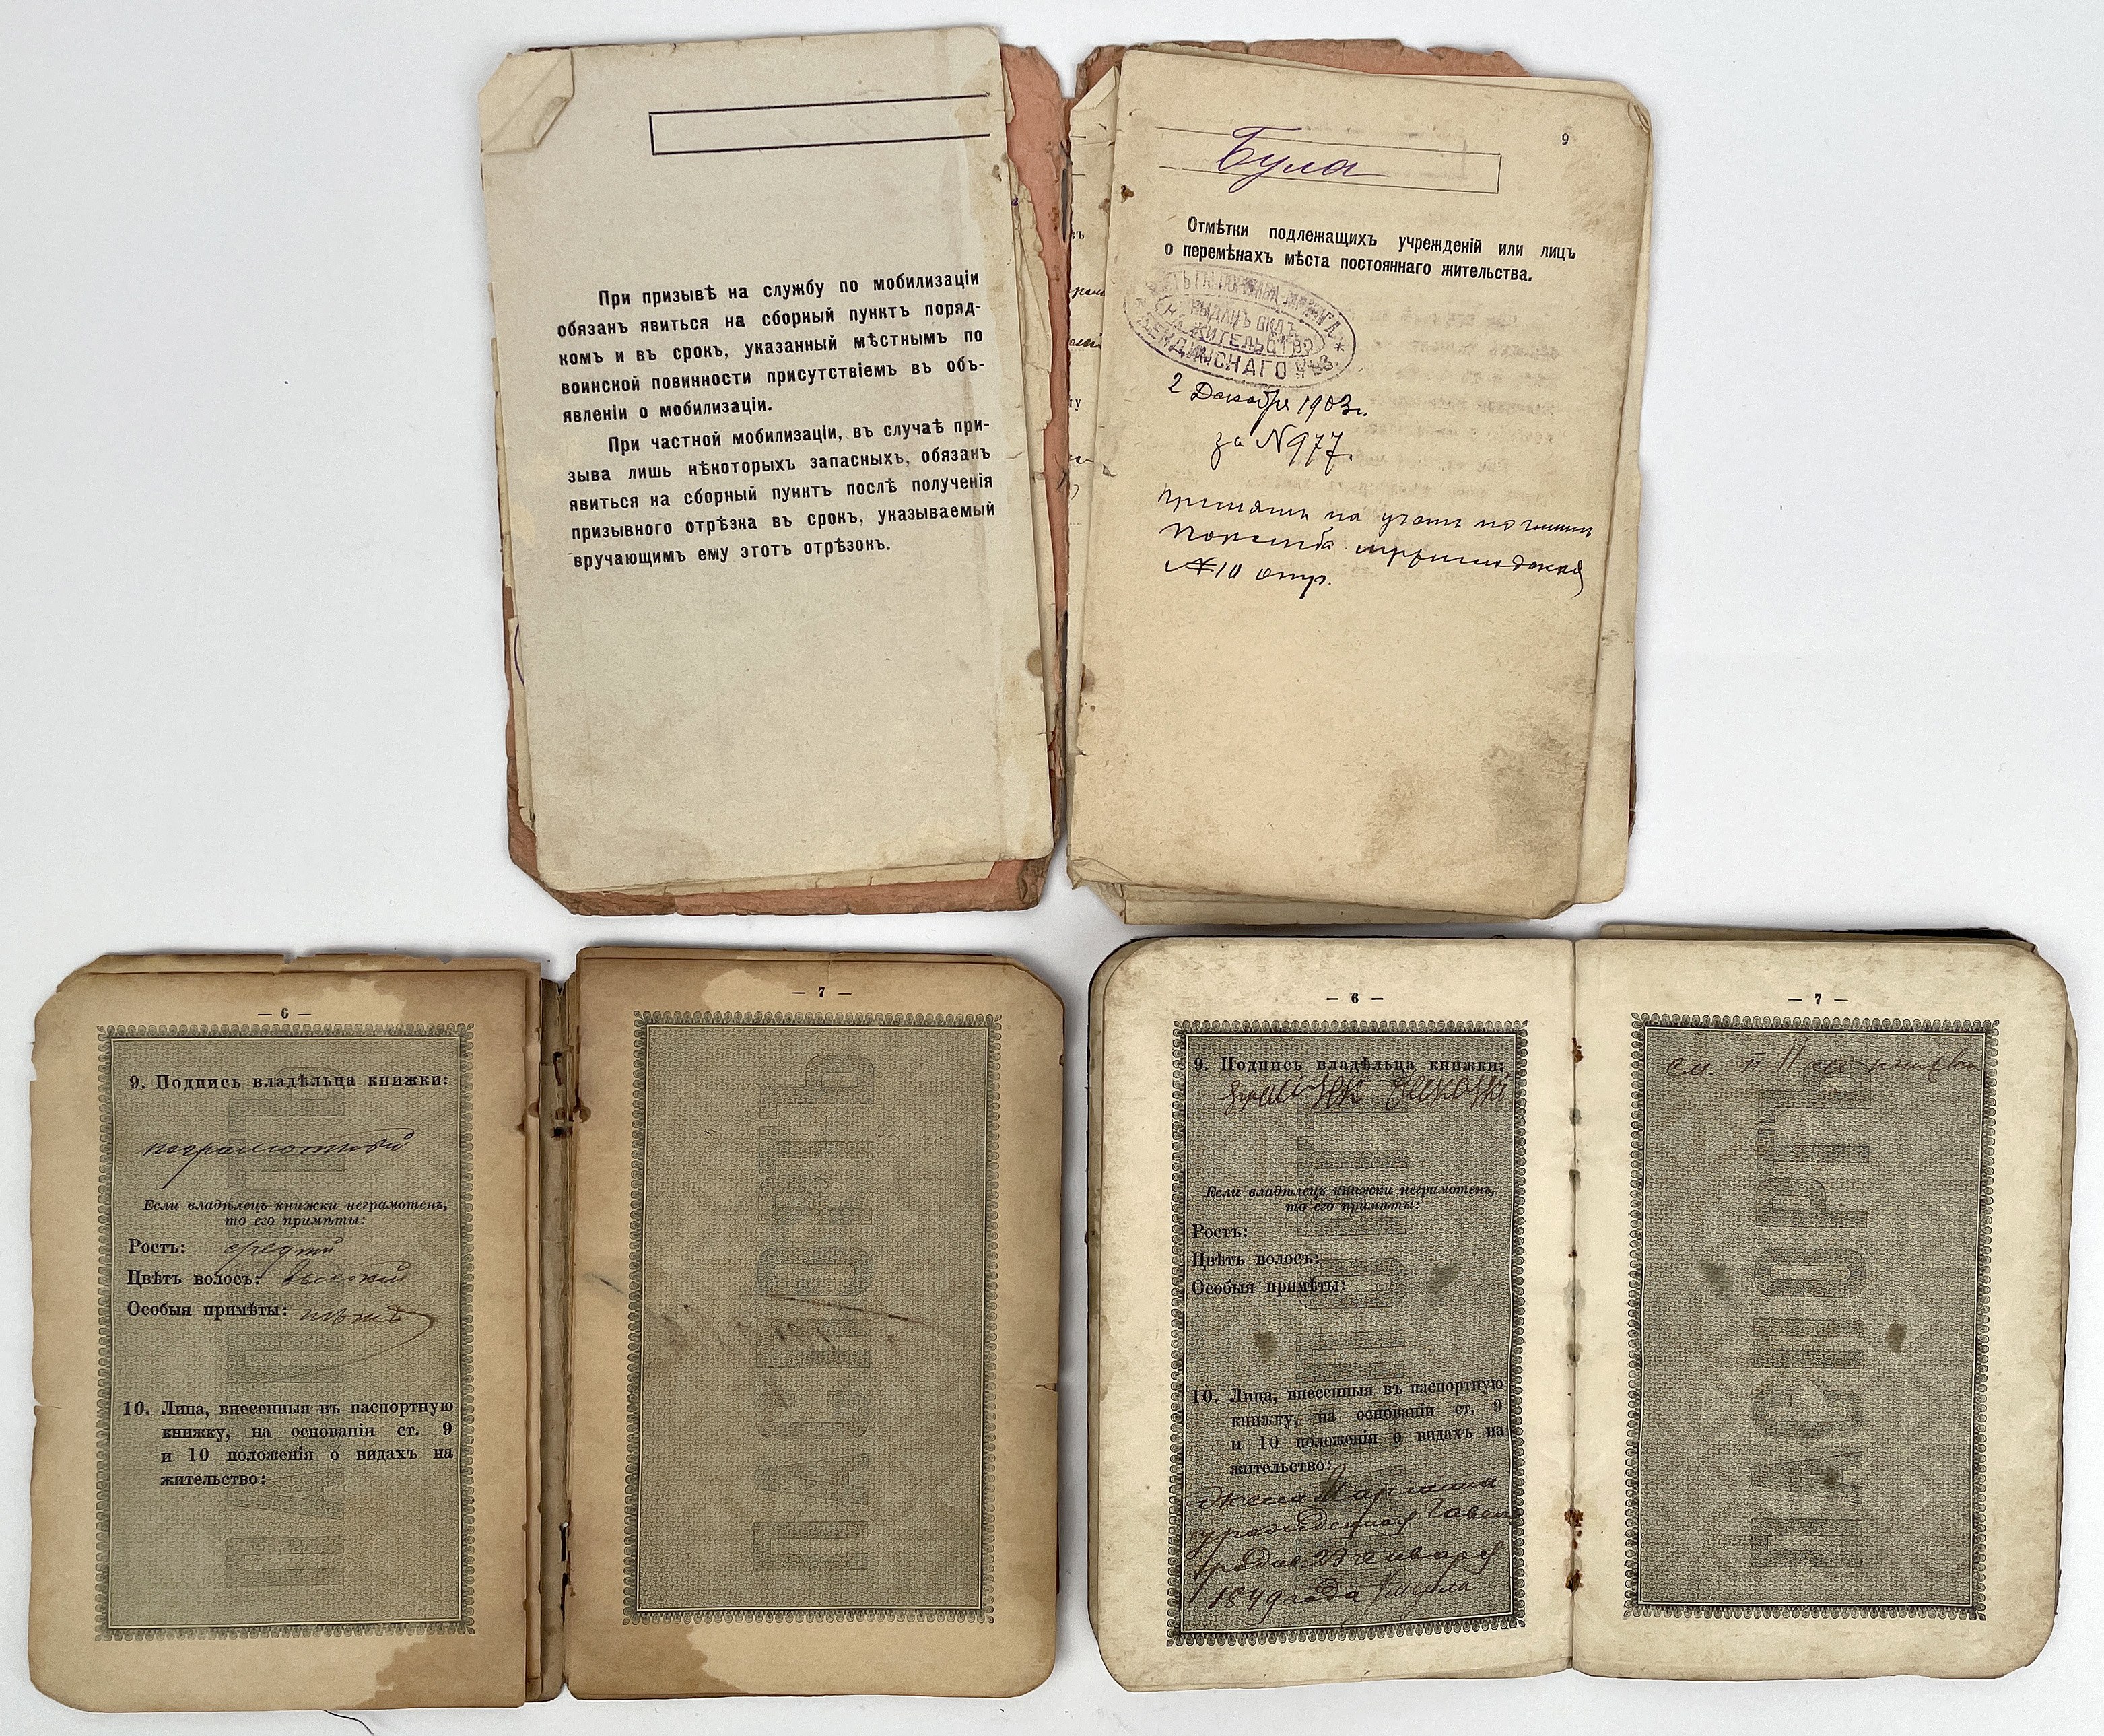 При призывѣ на службу по мобилизаціи
обязанъ явиться на сборный пунктъ поряд-
комъ и въ срокъ, указанный мѣстнымъ по
воинской повинности присутствіемъ въ объ-
явленіи о мобилизаціи.
При частной мобилизаціи, въ случаѣ при-
зыва лишь нѣкоторыхъ запасныхъ, обязанъ
явиться на сборный пунктъ послѣ полученія
призывного отрѣзка въ срокъ, указываемый
вручающимъ ему этотъ отрѣзокъ.
9
Була
Отмѣтки подлежащихъ учрежденій или лицъ
о перемѣнахъ мѣста постояннаго жительства.
ВЫДАНЪ ВИДЪ
НА ЖИТЕЛЬСТВО
2 Декабря 1903 г.
за N 977.
принятъ на учетъ
№ 10
— 6 —
9. Подпись владѣльца книжки:
неграмотный
Если владѣлецъ книжки неграмотенъ,
то его примѣты:
Ростъ: средній
Цвѣтъ волосъ:
Особыя примѣты:
10. Лица, внесенныя въ паспортную
книжку, на основаніи ст. 9
и 10 положенія о видахъ на
жительство:
ПАСПОРТЪ
— 7 —
ПАСПОРТЪ
— 6 —
9. Подпись владѣльца книжки:
Если владѣлецъ книжки неграмотенъ,
то его примѣты:
Ростъ:
Цвѣтъ волосъ:
Особыя примѣты:
10. Лица, внесенныя въ паспортную
книжку, на основаніи ст. 9
и 10 положенія о видахъ на
жительство:
жена Маріанна
урожденная
родив. 23 января
1849 года умерла
ПАСПОРТЪ
— 7 —
см
ПАСПОРТЪ